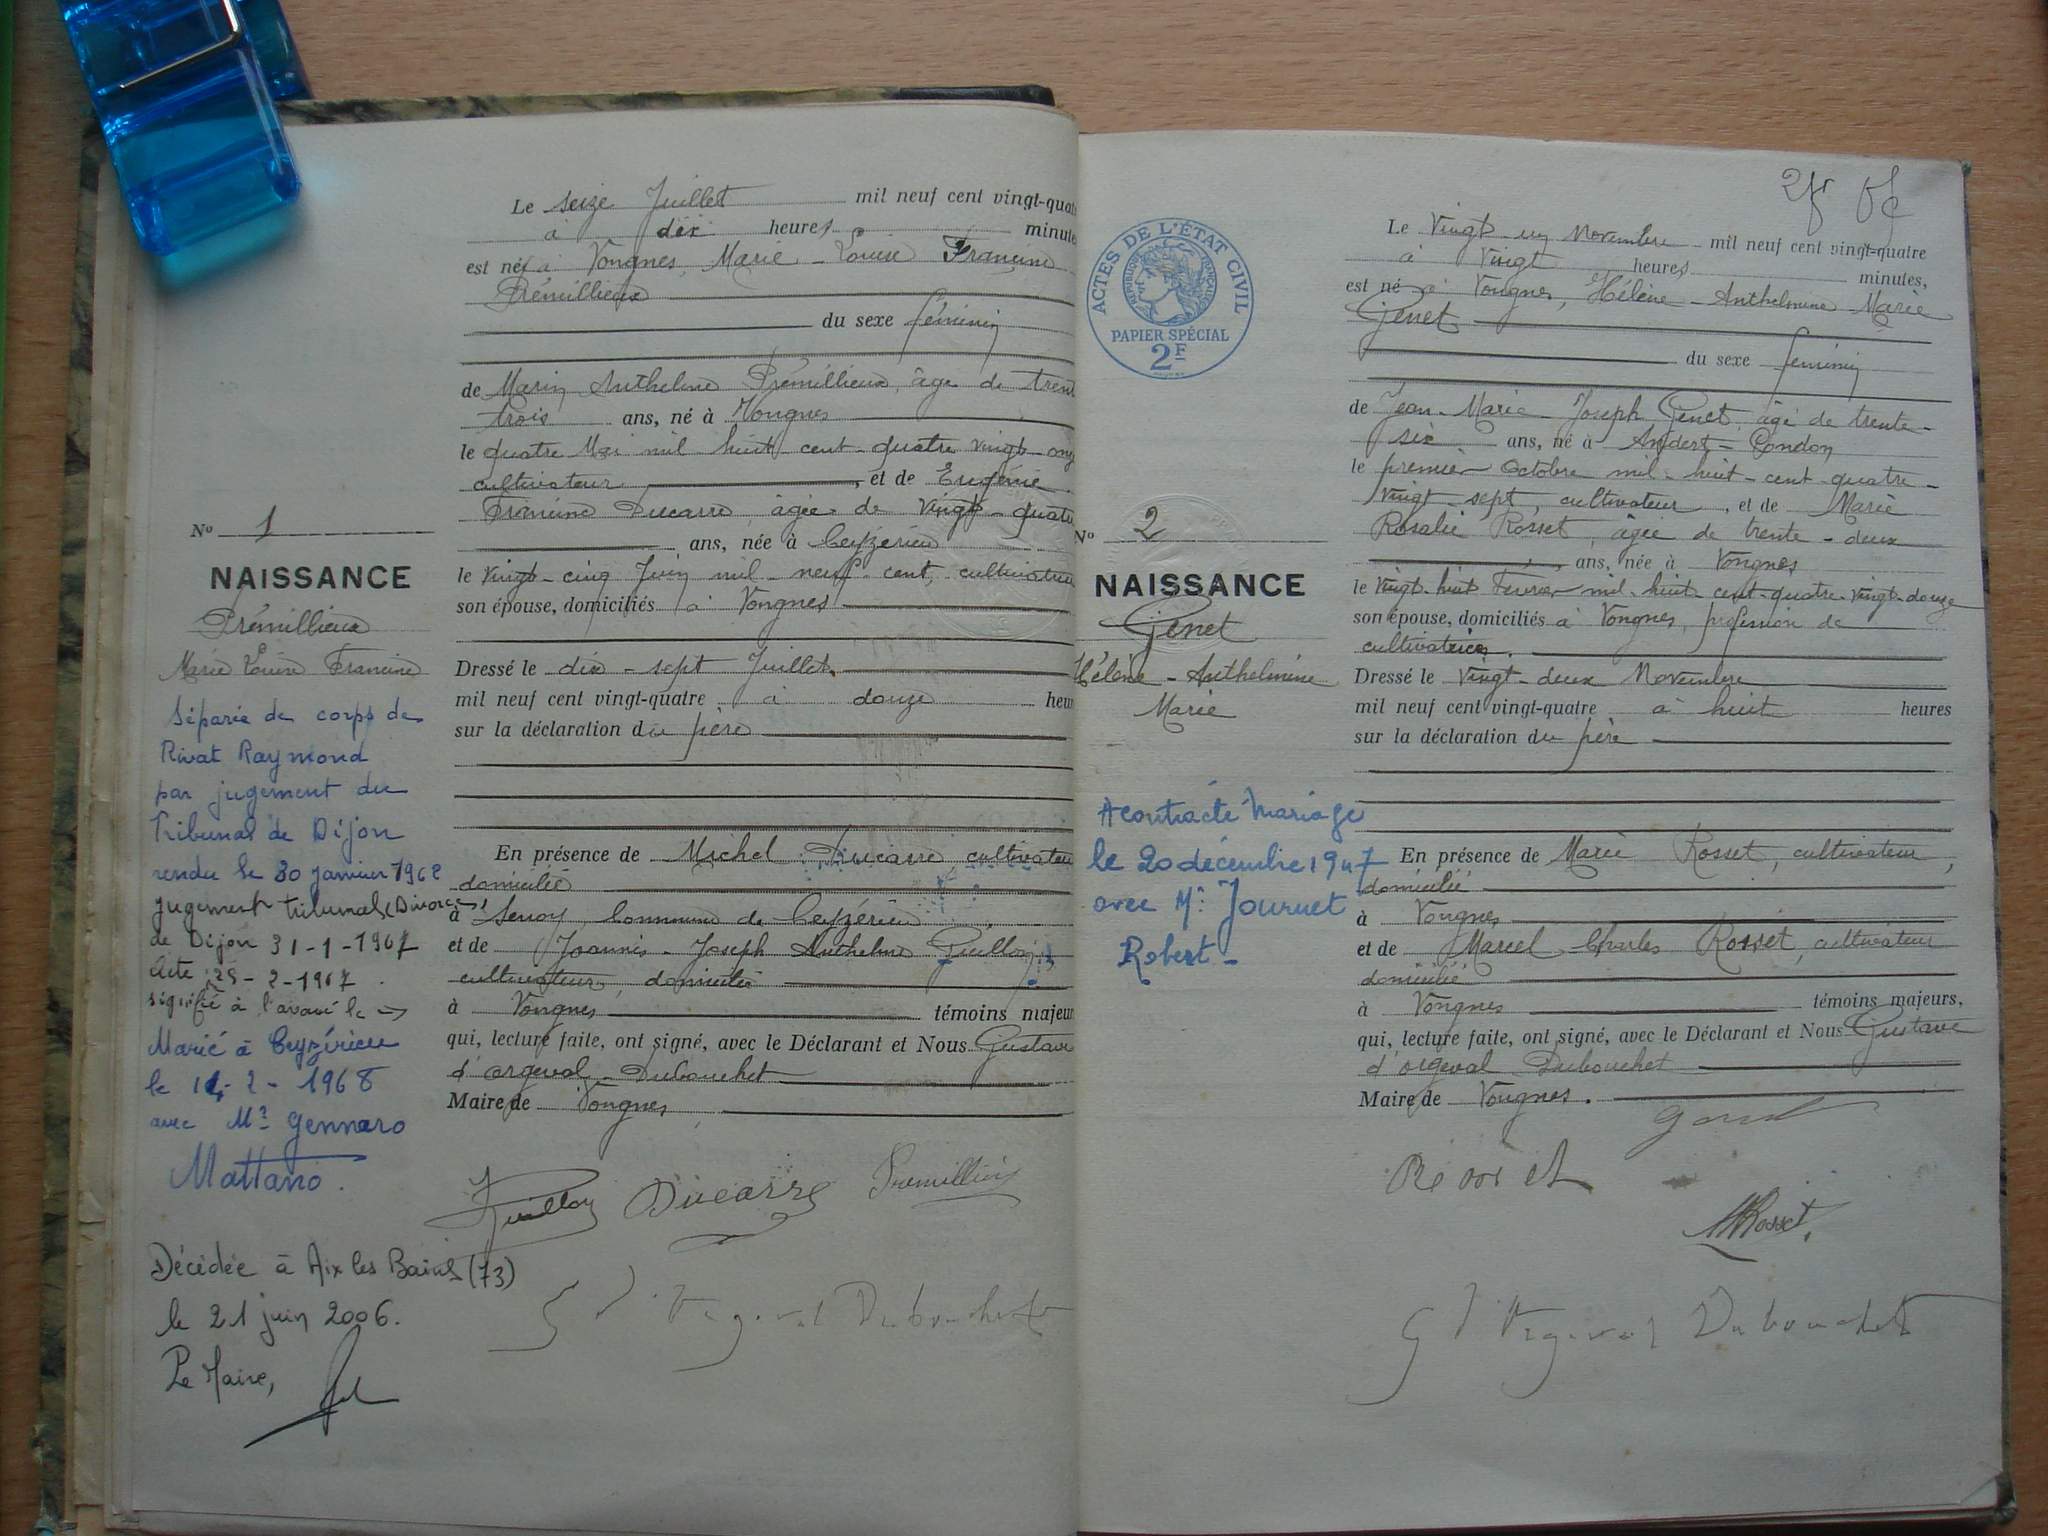 Le seize Juillet mil neuf cent vingt-quat
à dix heures minute
est né à Vongnes, Marie-Louise Francine
Prémillieux
du sexe féminin
de Marin Anthelme Prémillieux, âgé de trent
trois ans, né à Vongnes
le quatre Mai mil huit-cent-quatre vingt-onz
cultivateur, et de Eugénie
Francine Ducarre, âgée de vingt-quatr
ans, née à Ceyzérieu
le vingt-cinq Juin mil-neuf-cent, cultivatrice
son épouse, domiciliés à Vongnes
Dressé le dix-sept Juillet
mil neuf cent vingt-quatre à douze heur
sur la déclaration du père
En présence de Michel Ducarre, cultivateu
domicilié
à Senoy, Commune de Ceyzérieu
et de Joannis-Joseph Anthelme Guilloy
cultivateur, domicilié
à Vongnes témoins majeur
qui, lecture faite, ont signé, avec le Déclarant et Nous Gustave
d'orgeval-Dubouchet
Maire de Vongnes
Nº 1
NAISSANCE
Prémillieux
Marie Louise Francine
Séparée de corps de
Rivat Raymond
par jugement du
Tribunal de Dijon
rendu le 30 janvier 1962
jugement tribunal (Divorce)
de Dijon 31-1-1967
acte 25-2-1967
signifié à l'avoué le
Marié à Ceyzérieu
le 14-2-1968
avec Mr Gennaro
Mattano.
Décédée à Aix les Bains (73)
le 21 juin 2006.
Le Maire,
Guilloy Ducarre Prémillieux
G d'Orgeval Dubouchet
ACTES DE L'ÉTAT CIVIL
RÉPUBLIQUE FRANÇAISE
PAPIER SPÉCIAL
2F
Le vingt-un Novembre mil neuf cent vingt-quatre
à vingt heures minutes,
est né à Vongnes, Hélène-Anthelmine-Marie
Genet
du sexe féminin
de Jean-Marie-Joseph Genet, âgé de trente-
six ans, né à Andert-Condon
le premier Octobre mil-huit-cent-quatre-
vingt-sept, cultivateur, et de Marie
Rosalie Rosset, âgée de trente-deux
ans, née à Vongnes
le vingt-huit Février mil-huit-cent-quatre-vingt-douze
son épouse, domiciliés à Vongnes, profession de
cultivatrice.
Dressé le vingt-deux Novembre
mil neuf cent vingt-quatre à huit heures
sur la déclaration du père
En présence de Marie Rosset, cultivateur,
domicilié
à Vongnes
et de Marcel Charles Rosset, cultivateur
domicilié
à Vongnes témoins majeurs,
qui, lecture faite, ont signé, avec le Déclarant et Nous Gustave
d'orgeval Dubouchet
Maire de Vongnes.
Nº 2
NAISSANCE
Genet
Hélène-Anthelmine
Marie
A contracté Mariage
le 20 décembre 1947
avec Mr Journet
Robert-
Genet
Rosset
M Rosset
G d'Orgeval Dubouchet